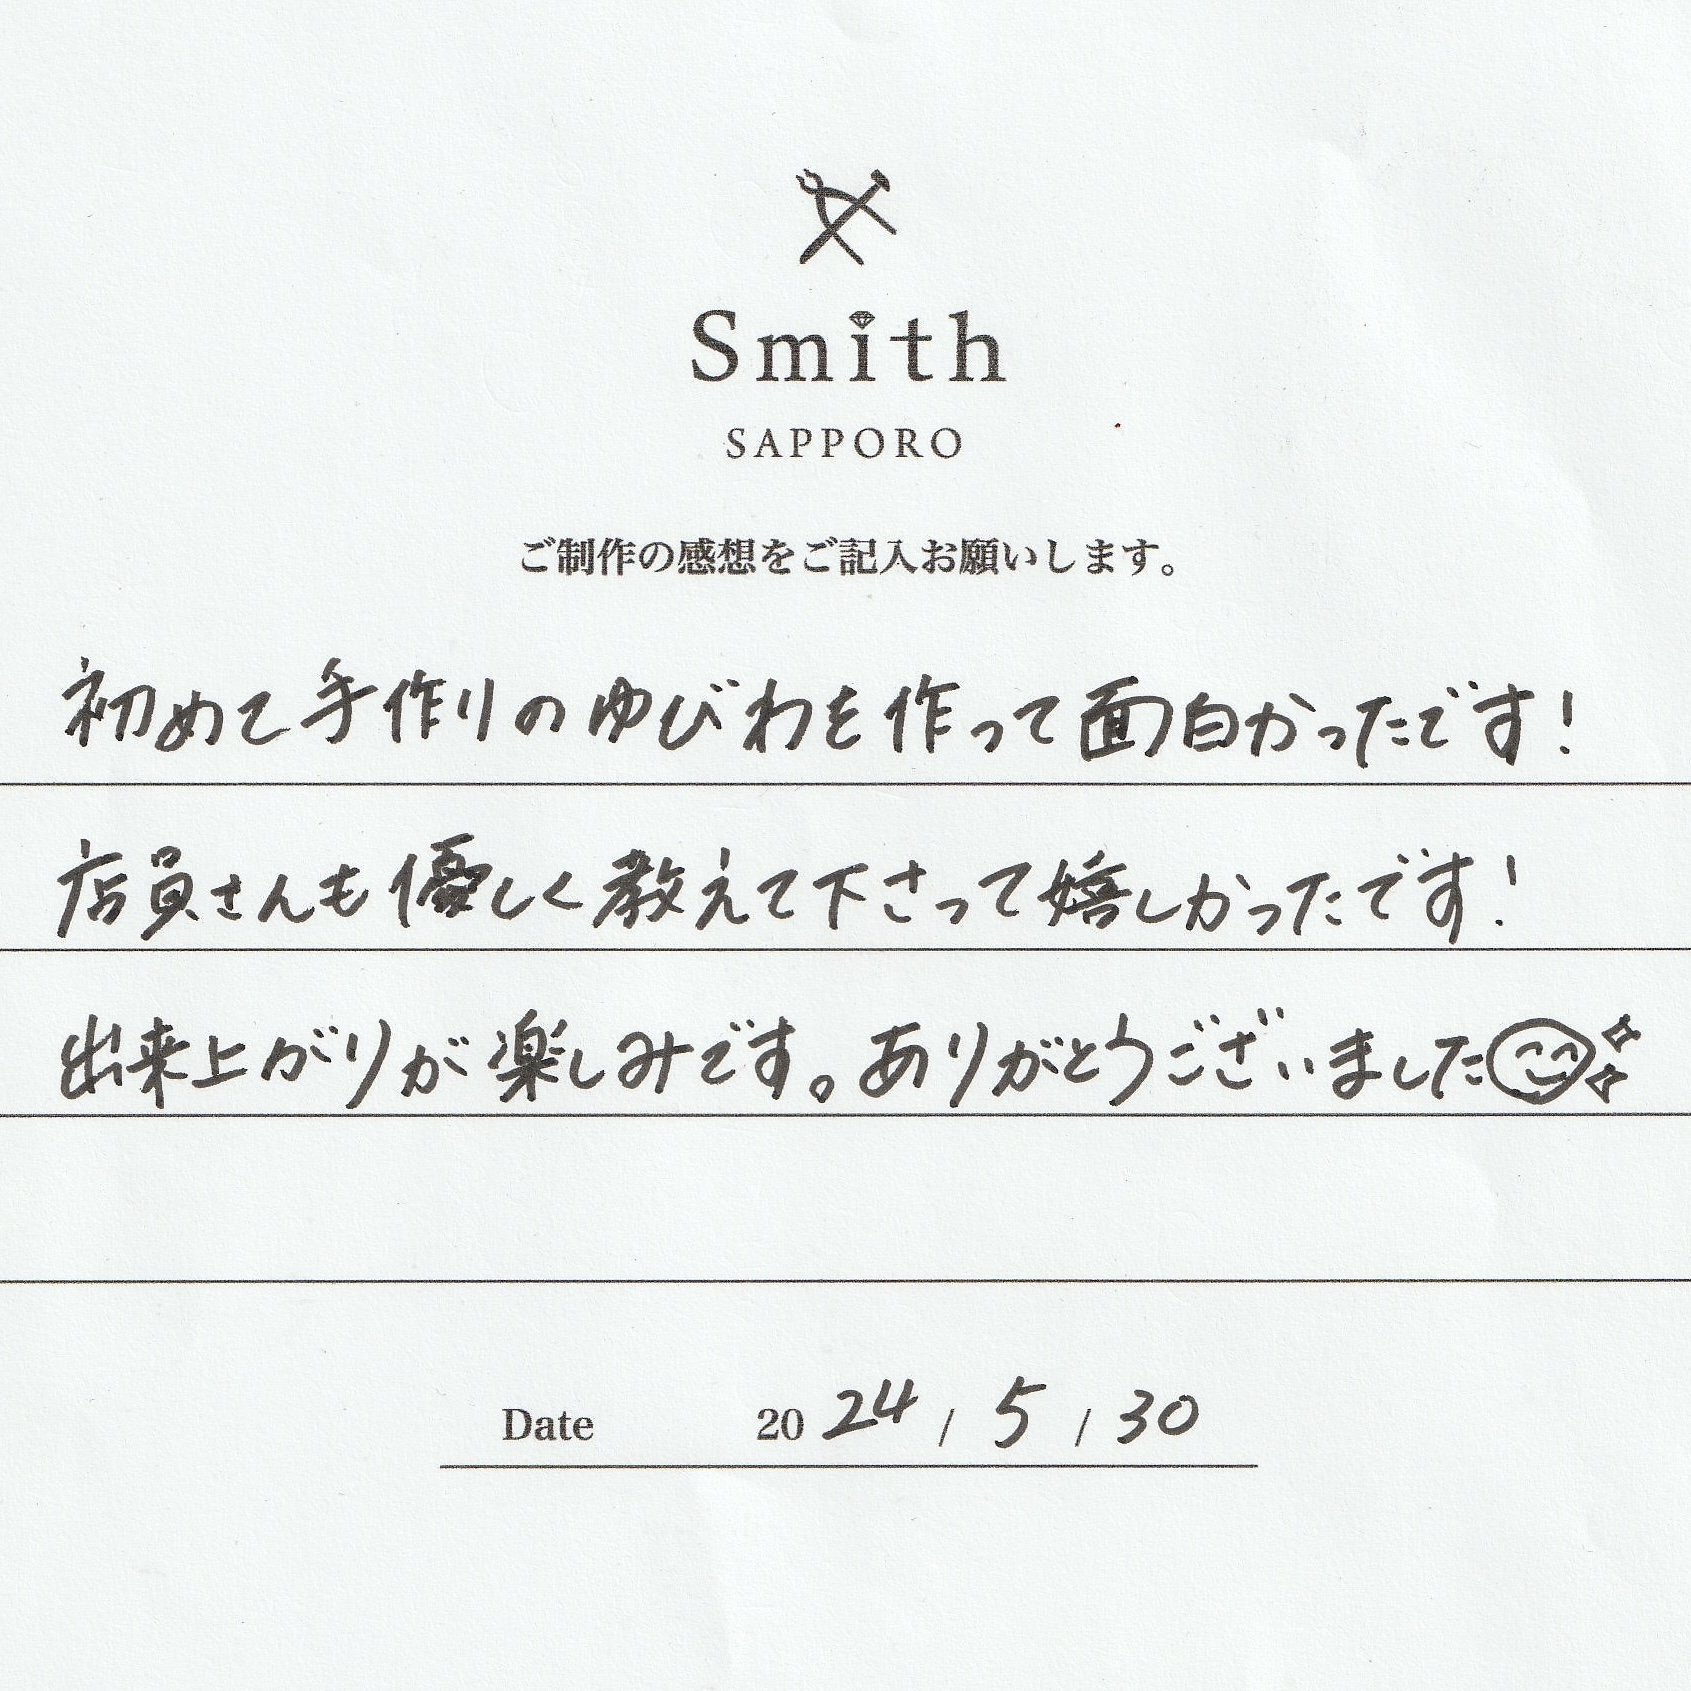 Smith
SAPPORO
ご制作の感想をご記入お願いします。
初めて手作りのゆびわを作って面白かったです！
店員さんも優しく教えて下さって嬉しかったです！
出来上がりが楽しみです。ありがとうございました
Date 2024/5/30